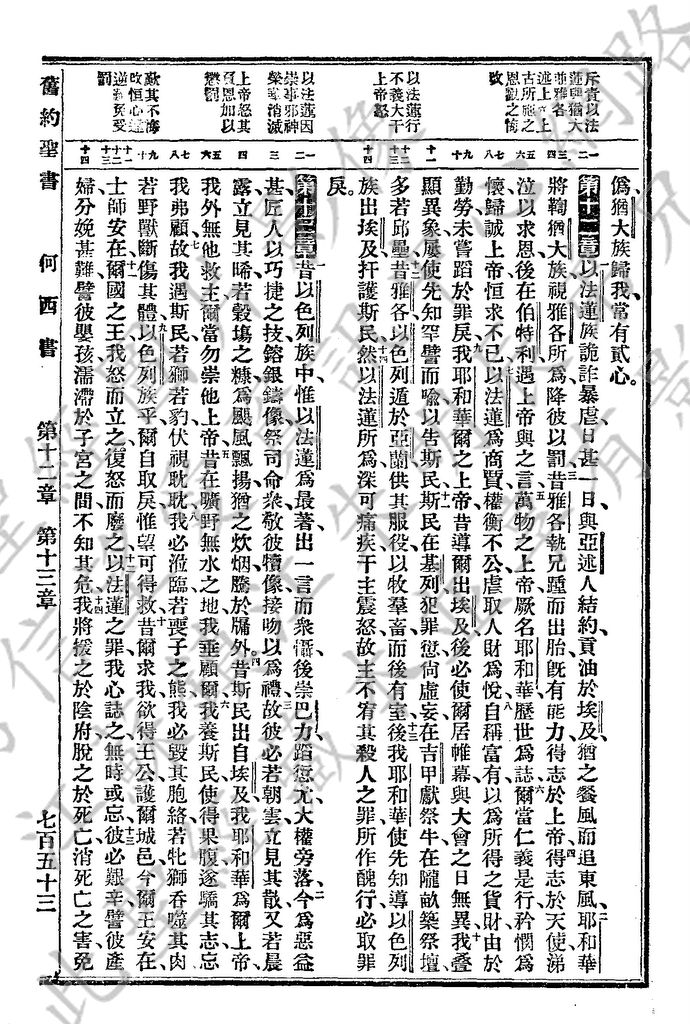 斥責以法
蓮與猶大
並雅各
古所施之
恩觀之悔
改
以法蓮行
不義大干
上帝怒
以法蓮因
崇事邪神
榮華消滅
上帝怒其
負恩加以
懲罰
歎其不悔
改恒心
罰
僞猶大族歸我常有貳心。
第十二章以法蓮族詭詐暴虐日甚一日與亞述人結約貢油於埃及猶之餐風而追東風耶和華
將鞫猶大族視雅各所爲降彼以罰昔雅各執兄踵而出胎旣有能力得志於上帝得志於天使涕
泣以求恩後在伯特利遇上帝與之言萬物之上帝厥名耶和華歷世爲誌爾當仁義是行矜憫爲
懷歸誠上帝恒求不已以法蓮爲商賈權衡不公虐取人財爲悅自稱富有以爲所得之貨財由於
勤勞未嘗蹈於罪戾我耶和華爾之上帝昔導爾出埃及後必使爾居帷幕與大會之日無異我叠
顯異象屢使先知罕譬而喩以告斯民斯民在基列犯罪愆尙虛妄在吉甲獻祭牛在隴畝築祭壇
多若邱壘昔雅各以色列遁於亞蘭供其服役以牧羣畜而後有室後我耶和華使先知導以色列
族出埃及扞護斯民然以法蓮所爲深可痛疾干主震怒故主不宥其殺人之罪所作醜行必取罪
戾。
第十三章昔以色列族中惟以法蓮爲最著出一言而衆懾後崇巴力蹈愆尤大權旁落今爲惡益
甚匠人以巧捷之技鎔銀鑄像祭司命衆敬彼犢像接吻以爲禮故彼必若朝雲立見其散又若晨
露立見其晞若穀塲之糠爲颶風飄揚猶之炊烟騰於牖外昔斯民出自埃及我耶和華爲爾上帝
我外無他救主爾當勿崇他上帝昔在曠野無水之地我垂顧爾我養斯民使得果腹遂驕其志忘
我弗顧故我遇斯民若獅若豹伏視耽耽我必涖臨若喪子之熊我必毀其胞絡若牝獅吞噬其肉
若野獸斷傷其體以色列族乎爾自取戾惟望可得救昔爾求我欲得王公護爾城邑今爾王安在
士師安在爾國之王我怒而立之復怒而廢之以法蓮之罪我心誌之無時或忘彼必艱辛譬彼產
婦分娩甚難譬彼嬰孩濡滯於子宮之間不知其危我將援之於陰府脫之於死亡消死亡之害免
舊約聖書 何西書 第十二章 第十三章 七百五十三